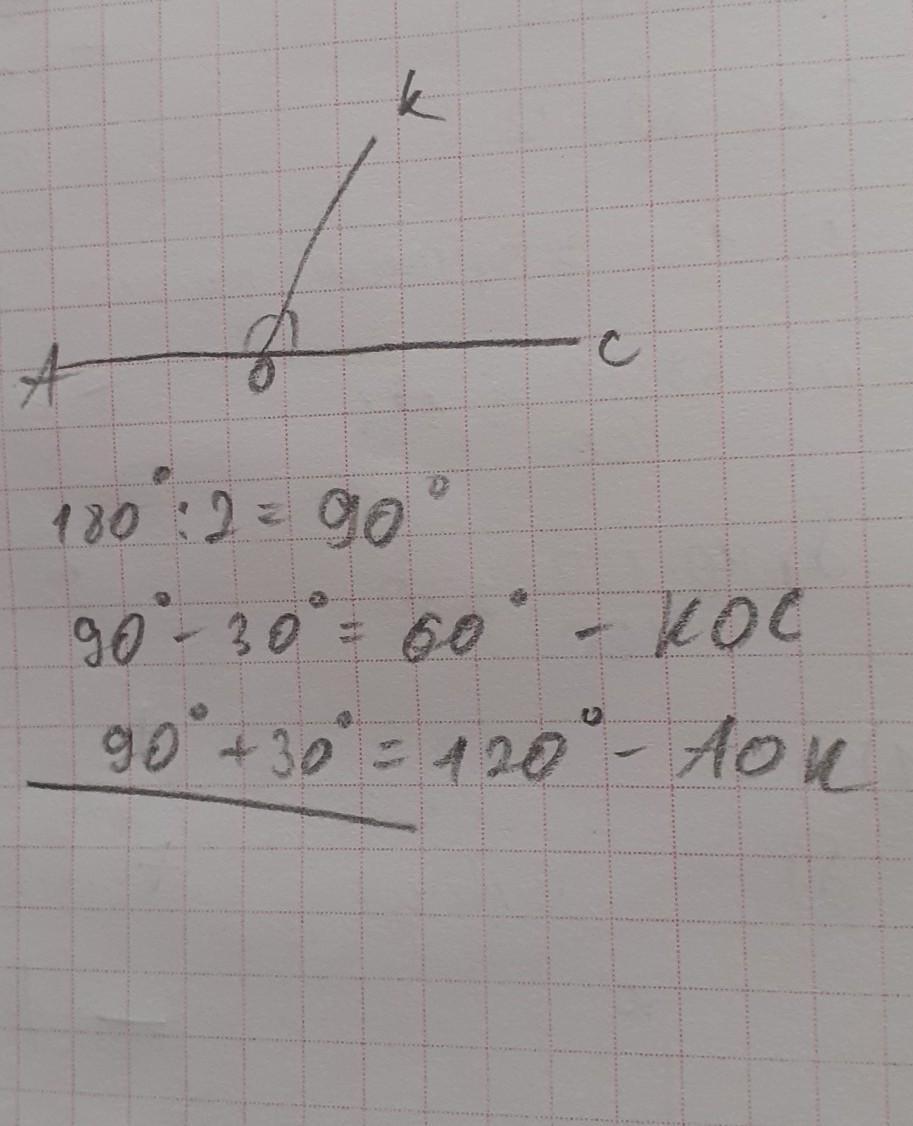 k
A
O
C
180° : 2 = 90°
90° - 30° = 60° - KOC
90° + 30° = 120° - AOK